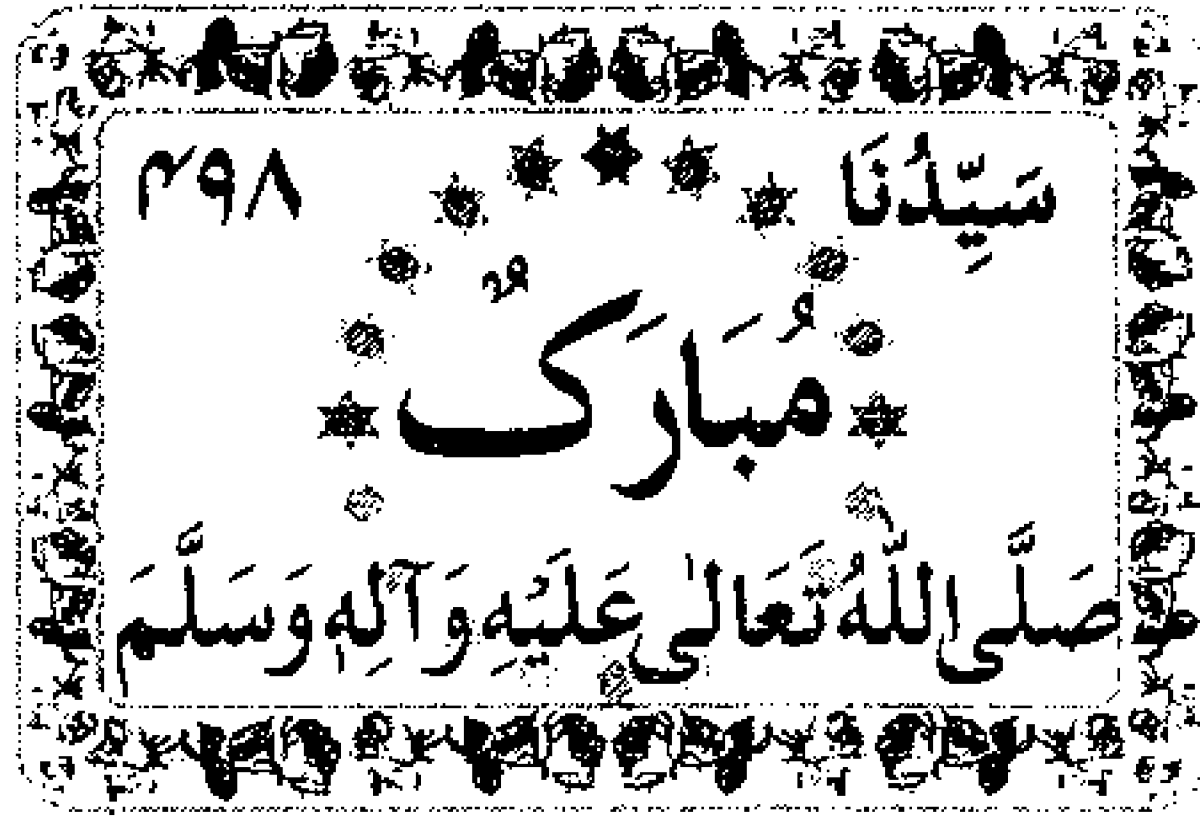 سَيِّدُنَا ۴۹۸
مُبَارَكٌ
صَلَّى اللّٰهُ تَعَالىٰ عَلَيْهِ وَآلِهٖ وَسَلَّمَ